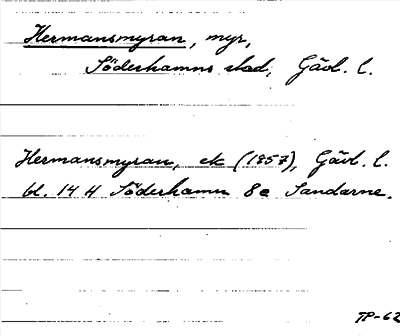 Hermansmyran, myr,
Söderhamns stad, Gävl. l.
Hermansmyran, ek (1957), Gävl. l.
bl. 14 H Söderhamn 8e Sandarne.
TP-62